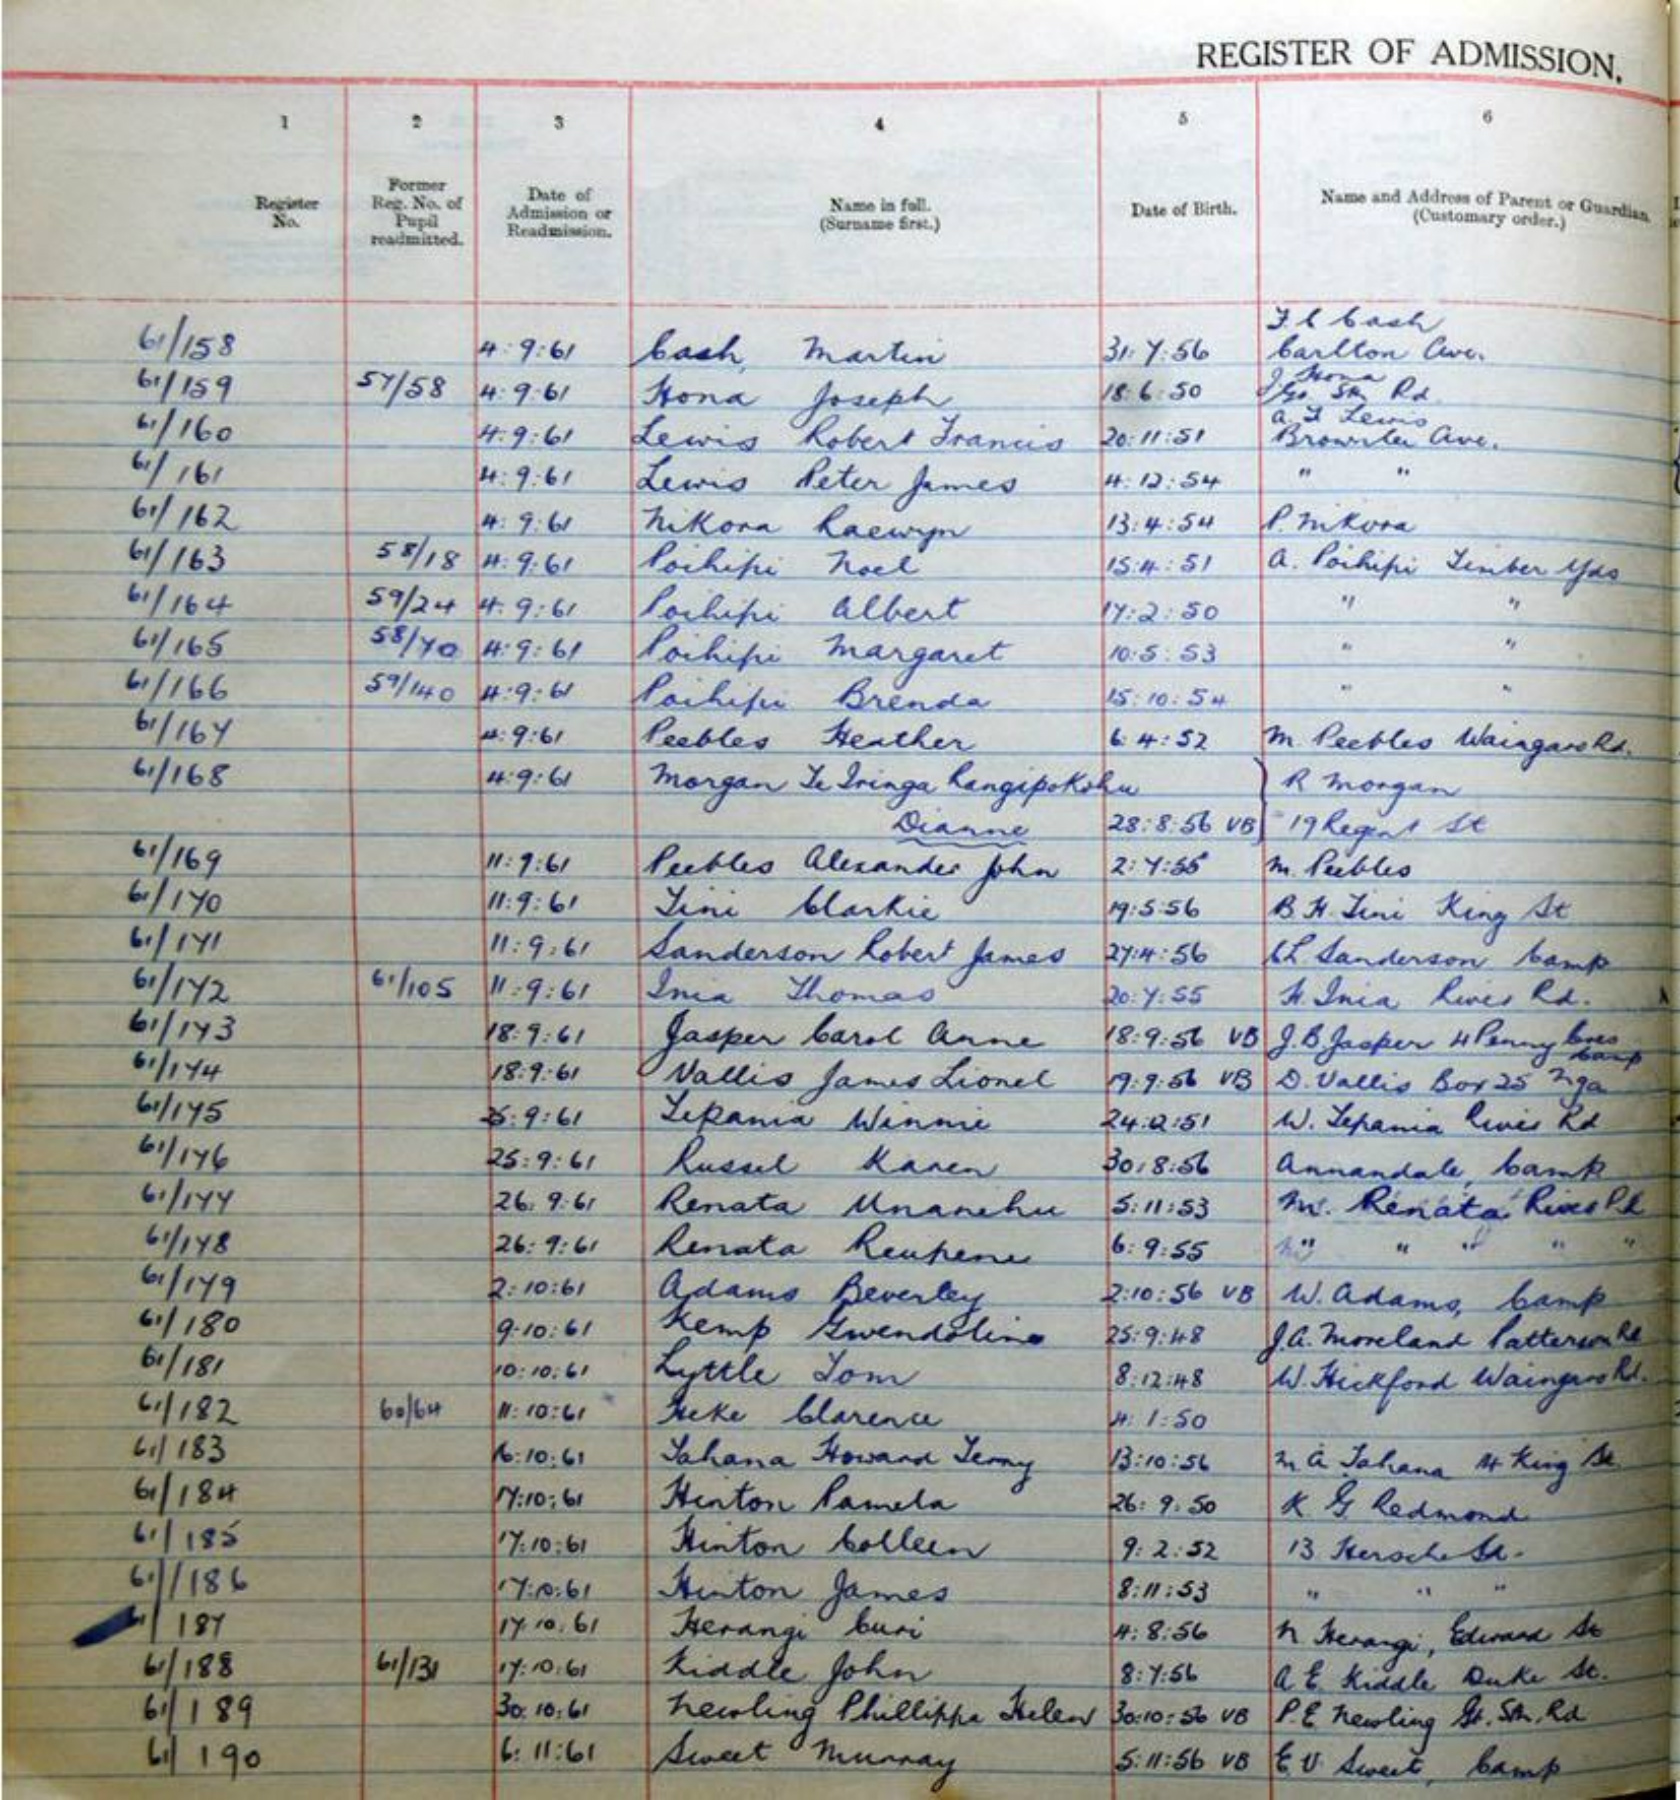 REGISTER OF ADMISSION.
1 2 3 4 5 6
Register No. Former Reg. No. of Pupil readmitted. Date of Admission or Readmission. Name in full. (Surname first.) Date of Birth. Name and Address of Parent or Guardian (Customary order.)
F C Cash
61/158 4:9:61 Cash, Martin 31:7:56 Carlton Ave.
J Hona
61/159 57/58 4:9:61 Hona Joseph 18:6:50 Gt. Sth Rd.
A. F Lewis
61/160 4:9:61 Lewis Robert Francis 20:11:51 Brownlee Ave.
61/161 4:9:61 Lewis Peter James 4:12:54 " "
61/162 4:9:61 Nikora Raewyn 13:4:54 P. Nikora
61/163 58/18 4:9:61 Poihipi Noel 15:4:51 A. Poihipi Timber Yds
61/164 59/24 4:9:61 Poihipi Albert 17:2:50 " "
61/165 58/70 4:9:61 Poihipi Margaret 10:5:53 " "
61/166 59/140 4:9:61 Poihipi Brenda 15:10:54 " "
61/167 4:9:61 Peebles Heather 6:4:52 M. Peebles Waingaro Rd.
61/168 4:9:61 Morgan Te Iringa Rangipokohu R Morgan
Dianne 28:8:56 VB 19 Regent St
61/169 11:9:61 Peebles Alexander John 2:7:55 M. Peebles
61/170 11:9:61 Tini Clarkie 19:5:56 B. H. Tini King St
61/171 11:9:61 Sanderson Robert James 27:4:56 C L. Sanderson Camp
61/172 61/105 11:9:61 Inia Thomas 20:7:55 H. Inia River Rd.
61/173 18:9:61 Jasper Carol Anne 18:9:56 VB J. B Jasper 4 Penny Cres Camp
61/174 18:9:61 Vallis James Lionel 19:9:56 VB D. Vallis Box 25 Nga
61/175 25:9:61 Tepania Winnie 24:2:51 W. Tepania River Rd
61/176 25:9:61 Russel Karen 30:8:56 Annandale, Camp
61/177 26:9:61 Renata Unanehu 5:11:53 M. Renata River Rd
61/178 26:9:61 Renata Reupene 6:9:55 " " " " "
61/179 2:10:61 Adams Beverley 2:10:56 VB W. Adams, Camp
61/180 9:10:61 Kemp Gwendoline 25:9:48 J. A. Moreland Patterson Rd
61/181 10:10:61 Lyttle Tom 8:12:48 W. Hickford Waingaro Rd.
61/182 60/64 11:10:61 Heke Clarence 4:1:50
61/183 16:10:61 Tahana Howard Terry 13:10:56 M. A Tahana 14 King St.
61/184 17:10:61 Hinton Pamela 26:9:50 K. G Redmond
61/185 17:10:61 Hinton Colleen 9:2:52 13 Herschel St.
61/186 17:10:61 Hinton James 8:11:53 " " "
61/187 17:10:61 Herangi Curi 4:8:56 N Herangi, Edward St
61/188 61/131 17:10:61 Kiddle John 8:7:56 A E. Kiddle Duke St.
61/189 30:10:61 Newling Phillippa Helen 30:10:56 VB P. E Newling Gt. Sth. Rd
61/190 6:11:61 Sweet Murray 5:11:56 VB E V. Sweet, Camp